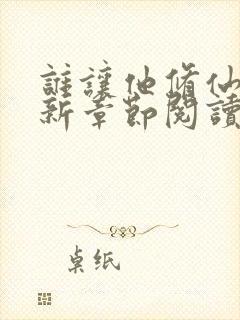 誰讓他修仙
新章節閱讀
卓纸